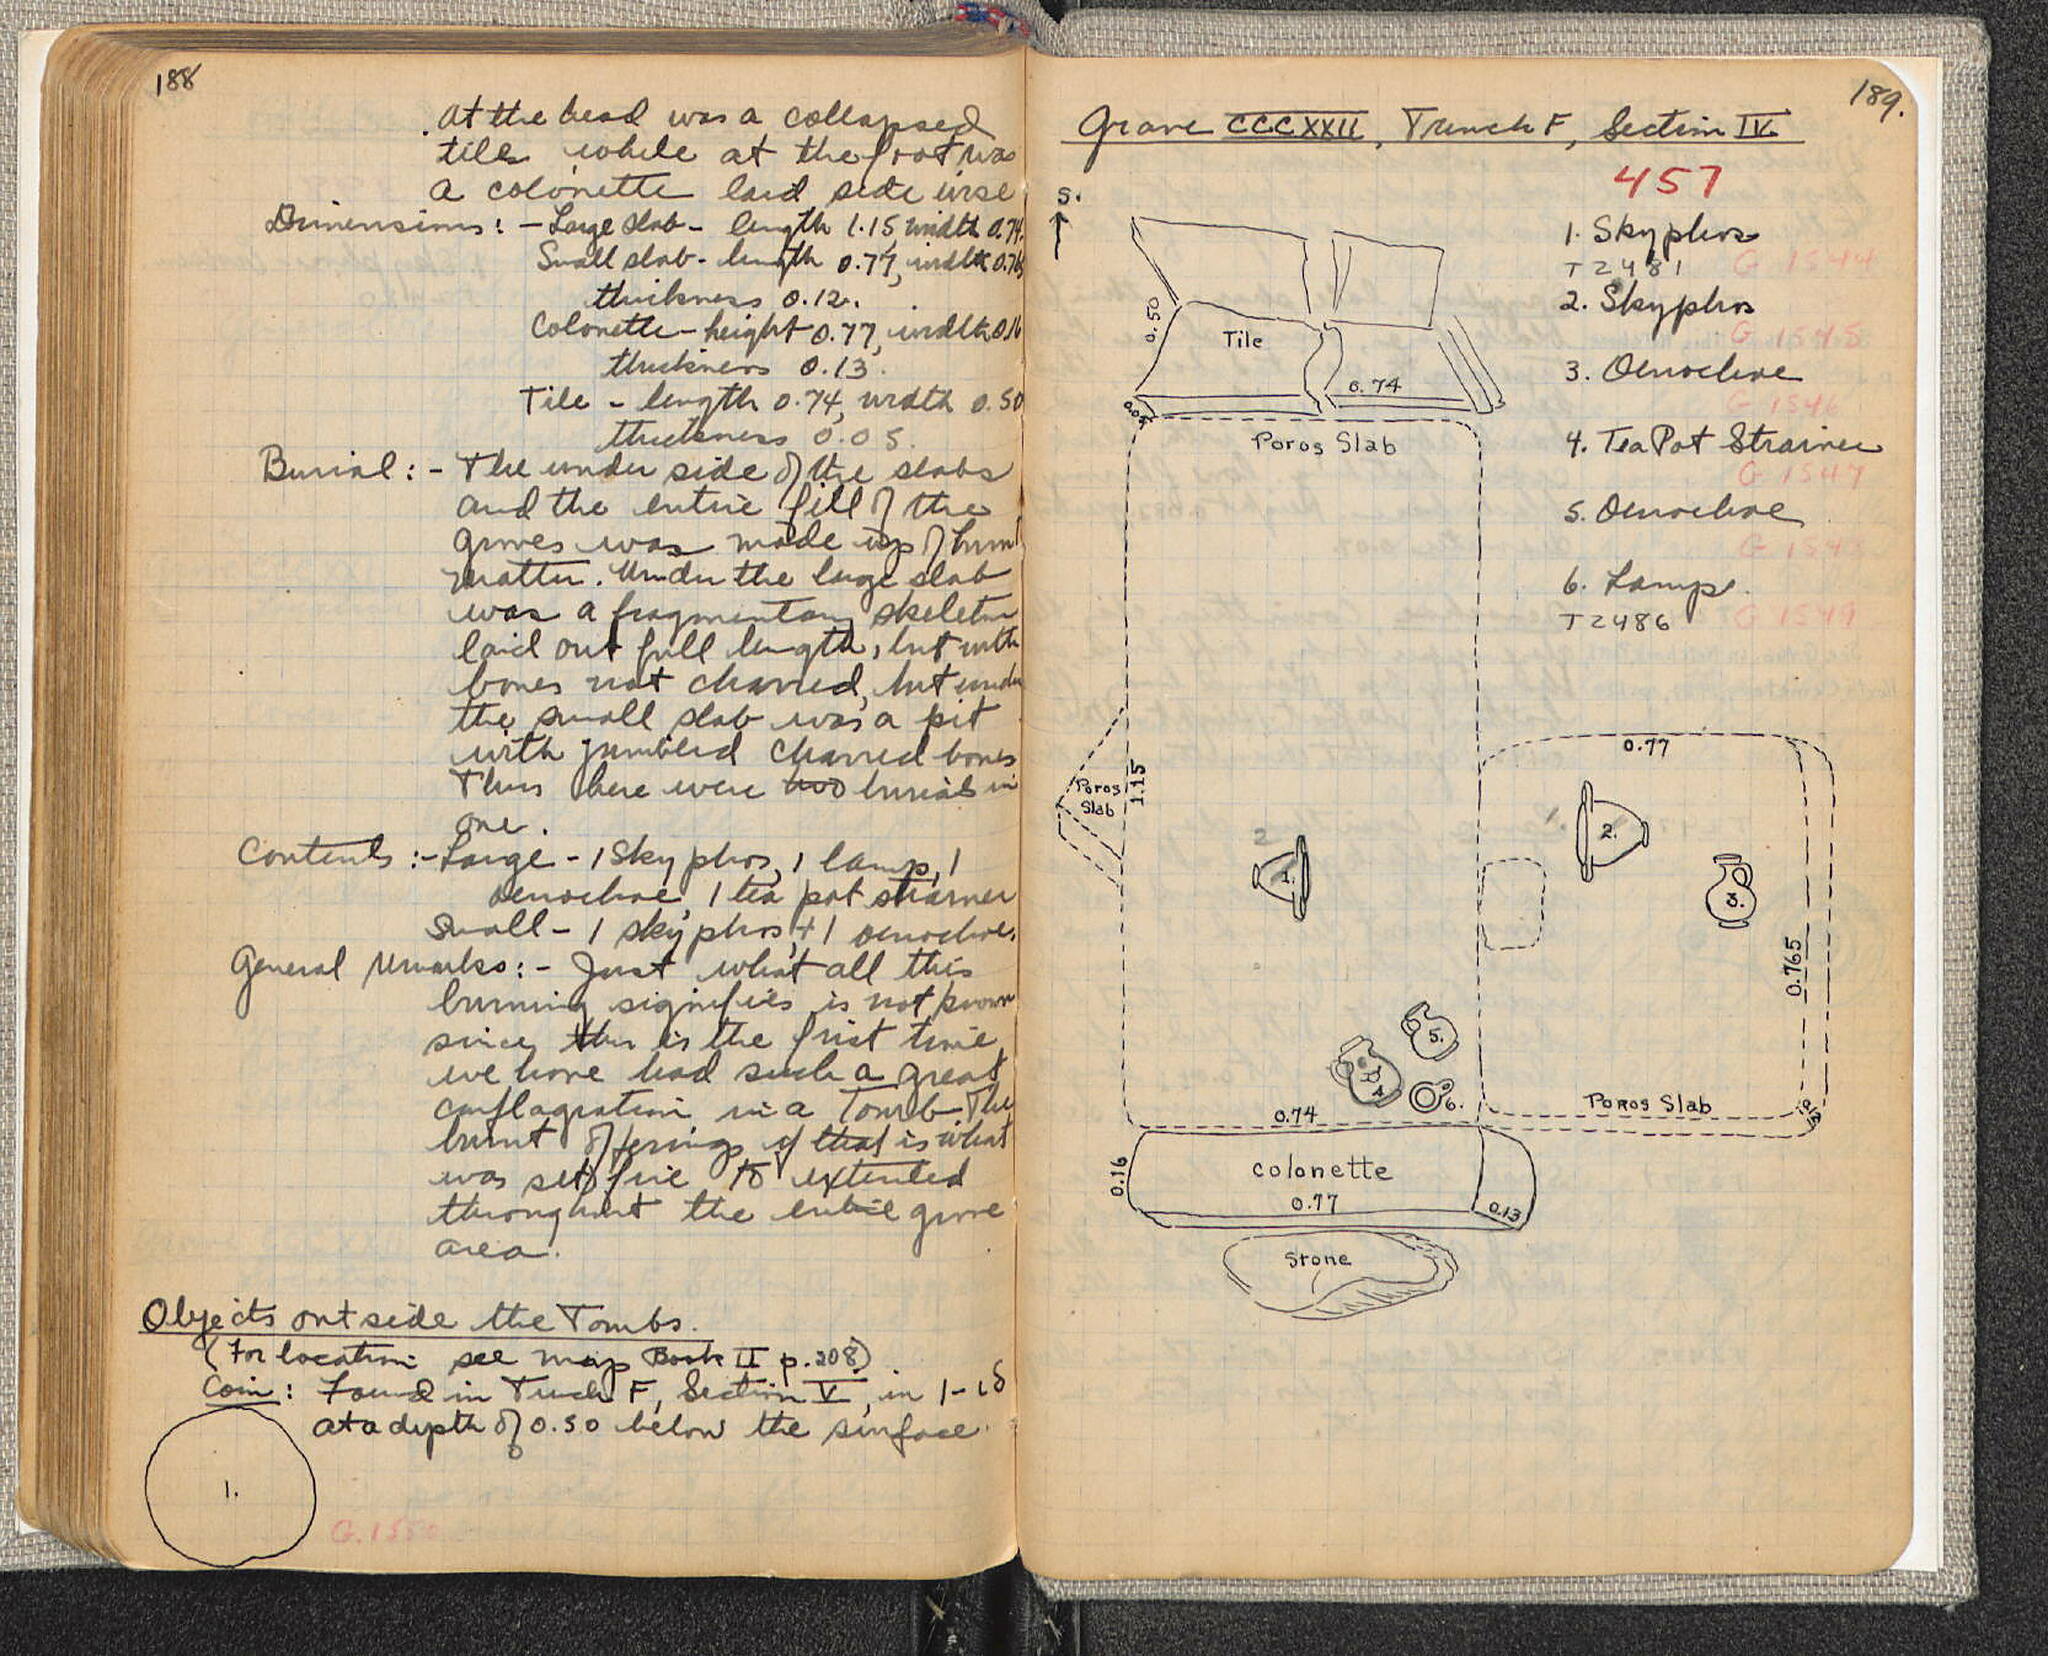 188
At the head was a collapsed
tile while at the foot was
a colonette laid side wise
Dimensions: - Large slab - length 1.15 width 0.74.
Small slab - length 0.77, width 0.765
thickness 0.12.
Colonette - height 0.77, width 0.16
thickness 0.13.
Tile - length 0.74, width 0.50
thickness 0.05.
Burial: - The under side of the slabs
and the entire fill of the
graves was made up of burnt
matter. Under the large slab
was a fragmentary skeleton
laid out full length, but with
bones not charred, but under
the small slab was a pit
with jumbled charred bones
Thus there were two burials in
one.
Contents: - Large - 1 Skyphos, 1 lamp, 1
oenochoe, 1 tea pot strainer
Small - 1 skyphos, + 1 oenochoe.
General Remarks: - Just what all this
burning signifies is not known
since this is the first time
we have had such a great
conflagration in a Tomb. The
burnt offerings if that is what
was set fire to extended
throughout the entire grave
area.
Objects outside the Tombs.
(For location see map Book II p. 208)
Coin: Found in Trench F, Section V, in
at a depth of 0.50 below the surface.
1.
G. 1550
189.
Grave CCCXXII, Trench F, Section IV
457
S.
1. Skyphos
T2481 G 1544
2. Skyphos
G 1545
3. Oenochoe
G 1546
4. Tea Pot Strainer
G 1547
5. Oenochoe
G 1548
6. Lamp.
T2486 G 1549
0.50
Tile
0.74
0.05
Poros Slab
Poros
Slab
1.15
0.77
2
1.
1.
2.
3.
0.765
5.
4
6.
0.74
Poros Slab
0.12
0.16
colonette
0.77
0.13
Stone